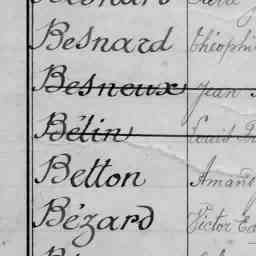 Besnard Théophi
Besneux Jean
Bélin Louis
Betton Amand
Bézard Victor Ed